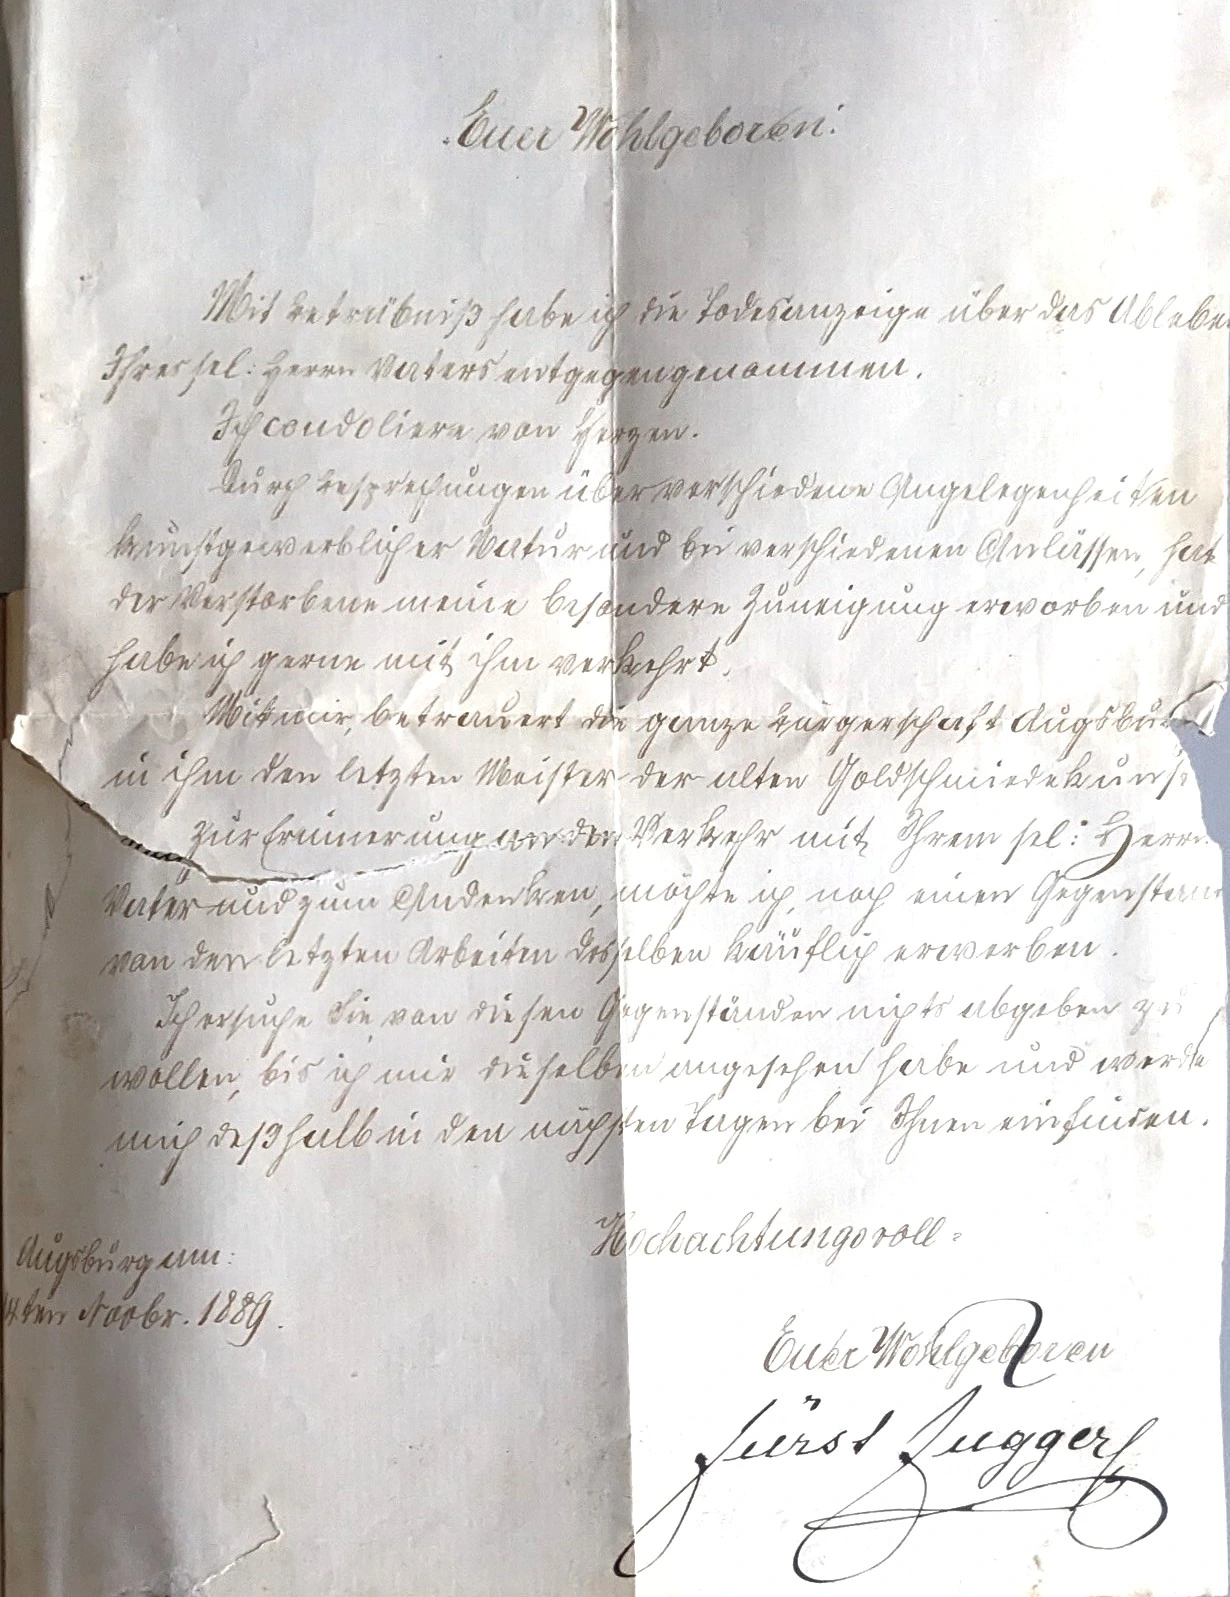 Euer Wohlgeboren!
Mit Betrübniß habe ich die Todesanzeige über das Ablebe
Ihres sel: Herrn Vaters entgegengenommen.
Ich condoliere von Herzen.
Durch Besprechungen über verschiedene Angelegenheiten
kunstgewerblicher Natur und bei verschiedenen Anlässen, hat
der Verstorbene meine besondere Zuneigung erworben und
habe ich gerne mit ihm verkehrt.
Mit mir, betrauert die ganze Bürgerschaft Augsbur
in ihm den letzten Meister der alten Goldschmiedekunst
Zur Erinnerung an den Verkehr mit Ihrem sel: Herrn
Vater und zum Andenken, möchte ich, noch einen Gegenstan
von den letzten Arbeiten desselben käuflich erwerben.
Ich ersuche Sie von diesen Gegenständen nichts abgeben zu
wollen, bis ich mir dieselben angesehen habe und werde
mich deßhalb in den nächsten Tagen bei Ihnen einfinden.
Hochachtungsvoll
Augsburg am:
4ten Novbr. 1889.
Euer Wohlgeboren
Fürst Fugger